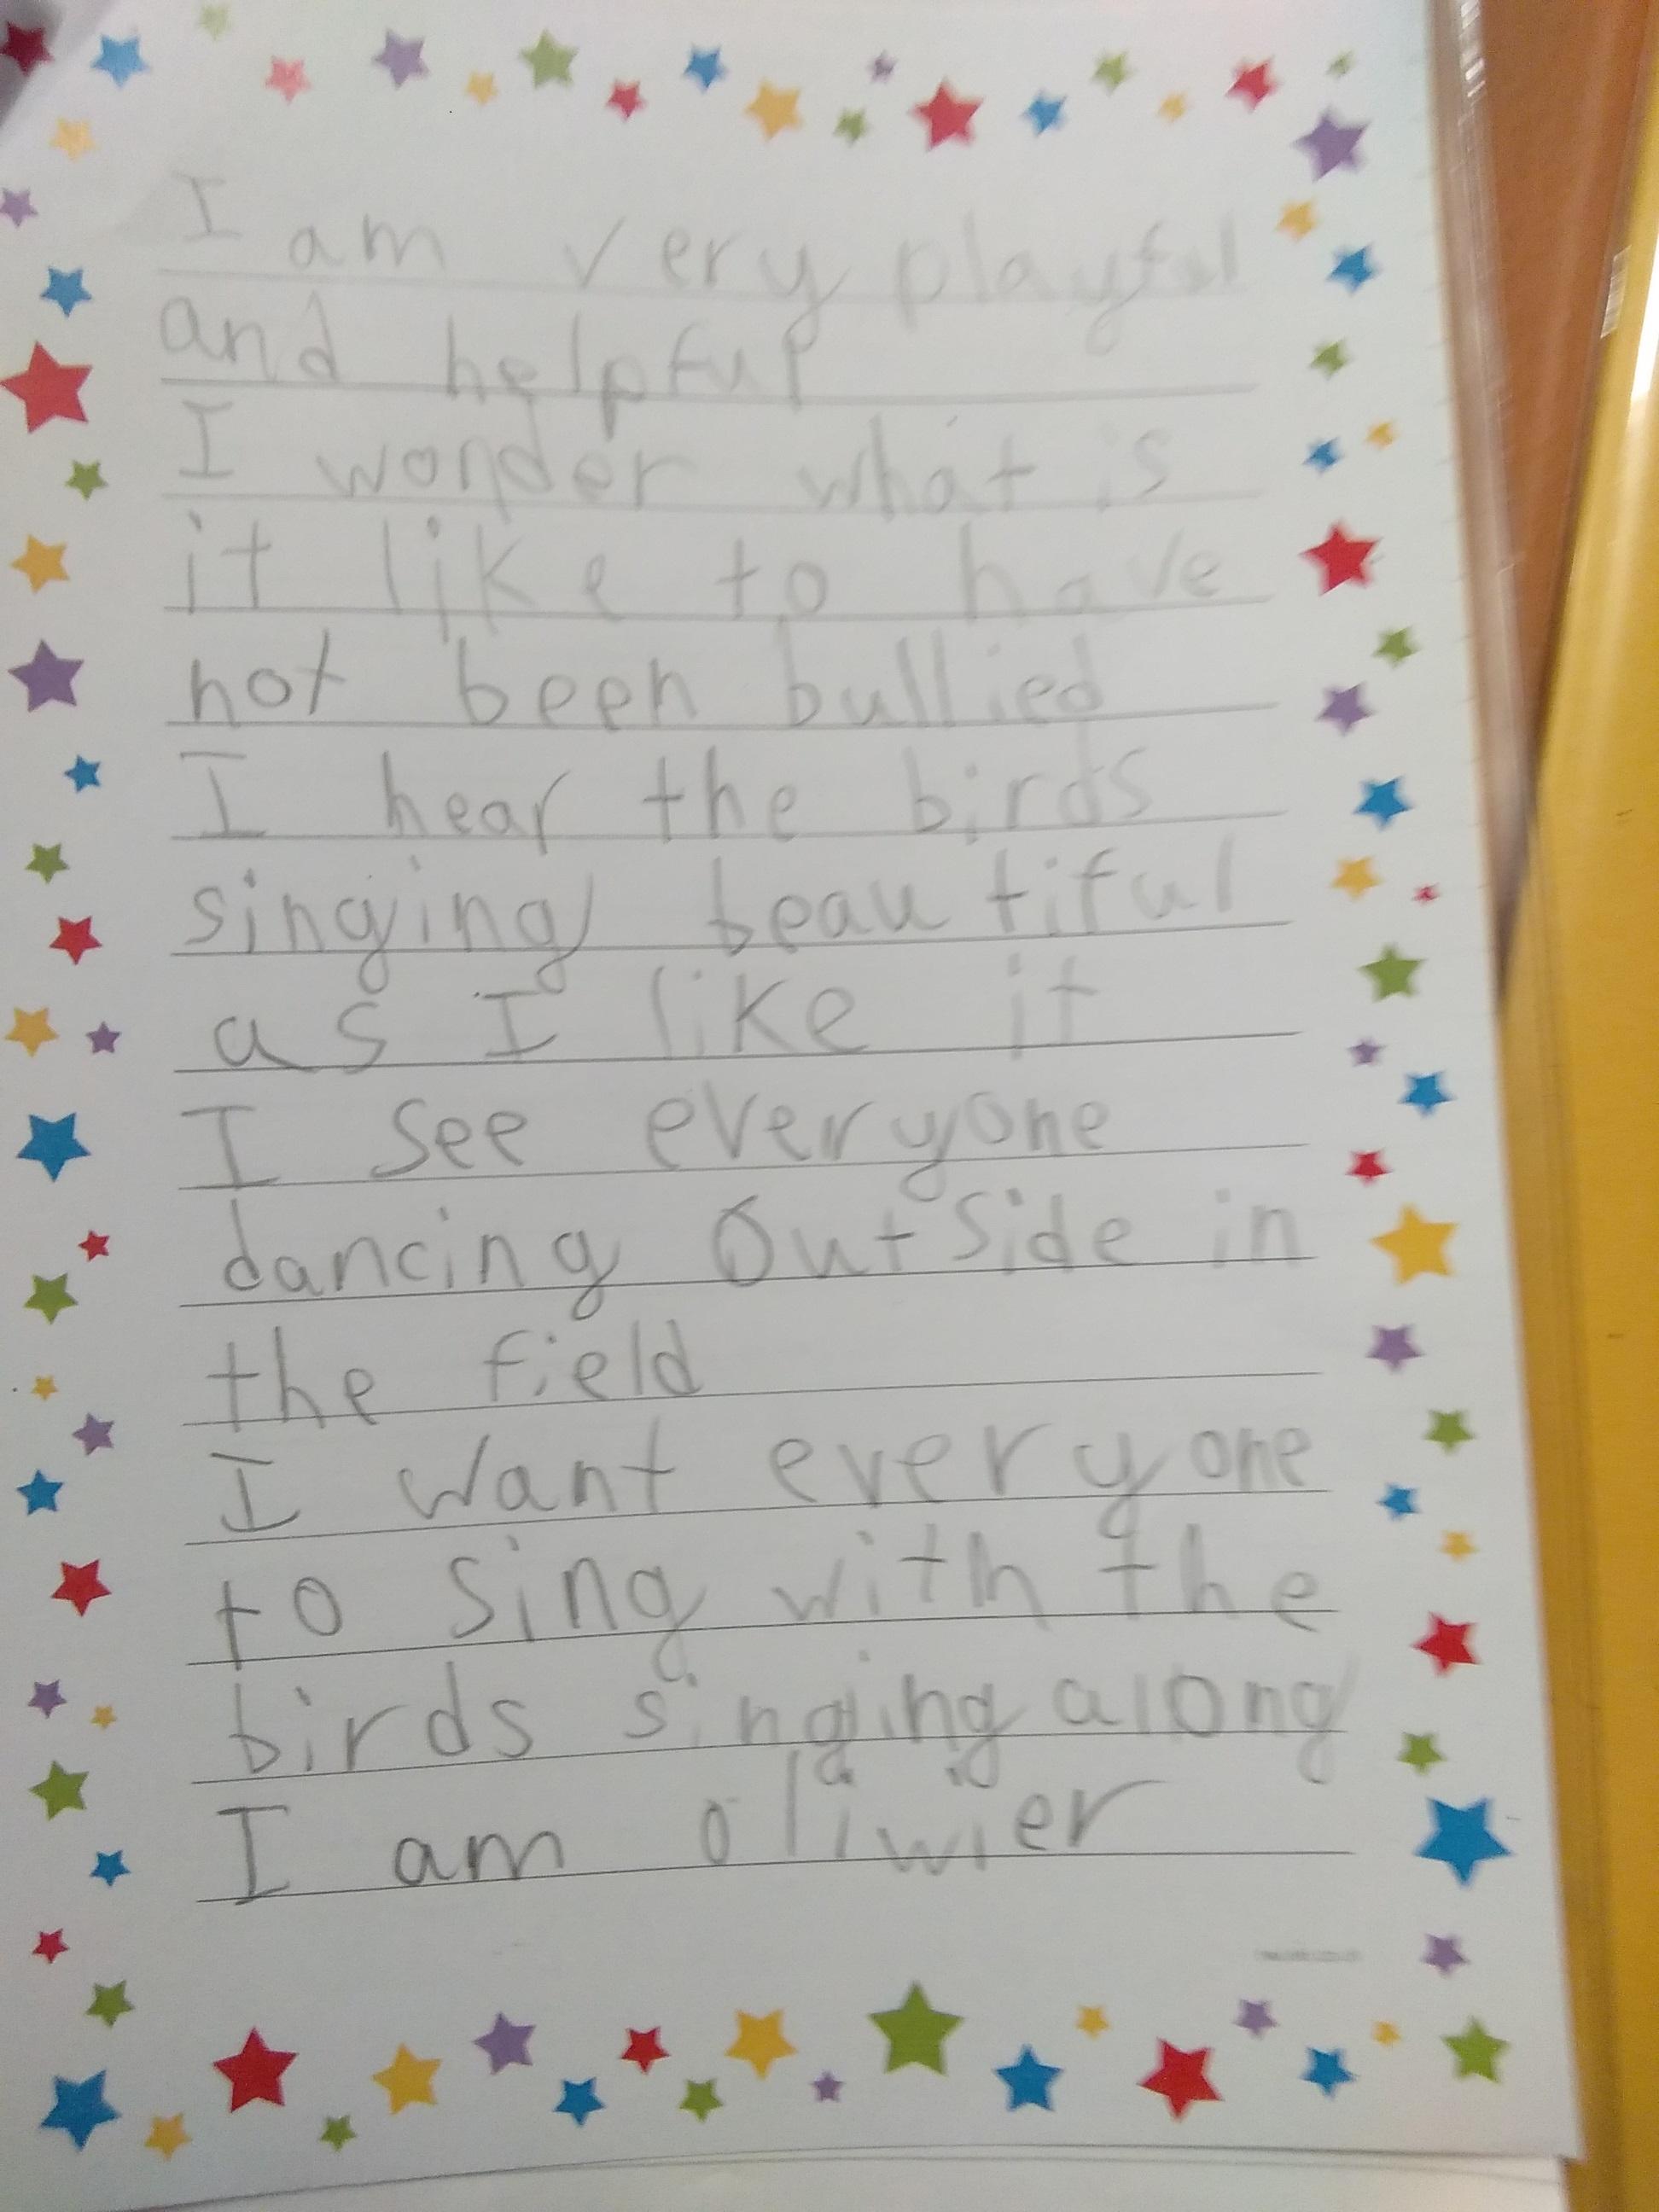 I am very playful
and helpful
I wonder what is
it like to have
not been bullied
I hear the birds
singing beautiful
as I like it
I see everyone
dancing outside in
the field
I want everyone
to sing with the
birds singing along
I am oliwier